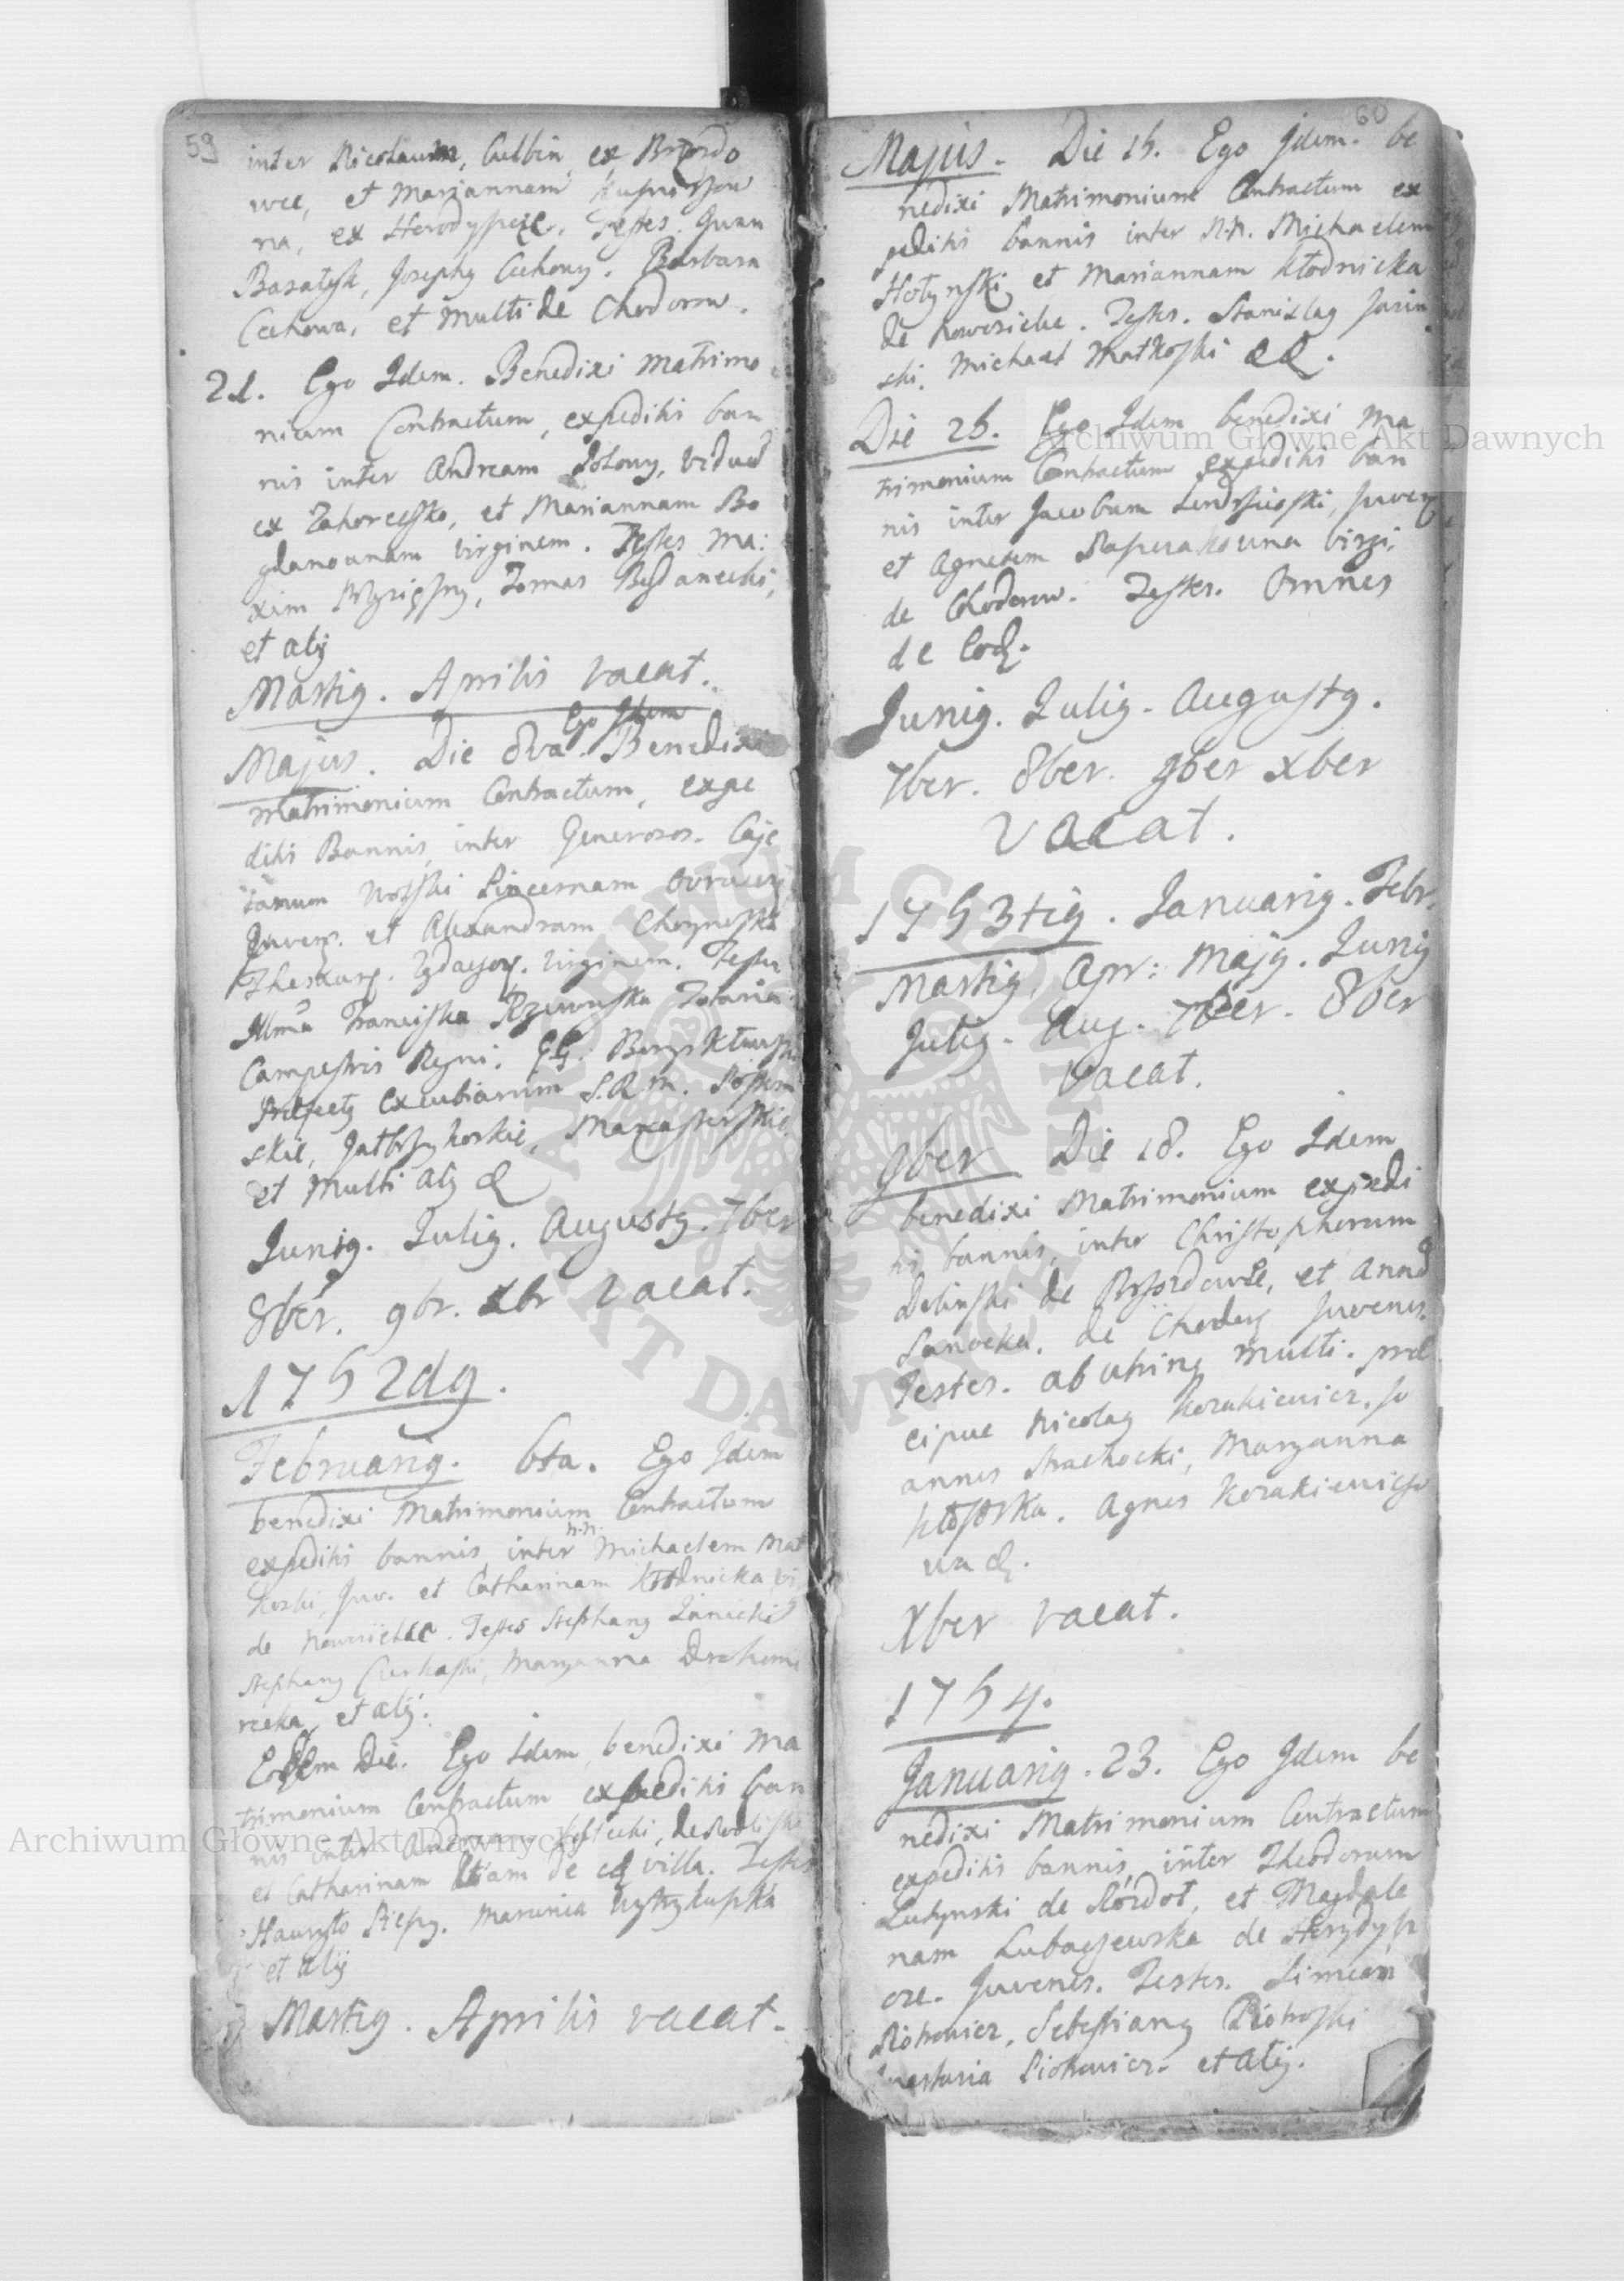 59
inter Nicolaum, Culbin, ex Brzozdo
wce, et Mariannam
na, ex Horodyszcze, Testes. Iwan
Basatyk, Josephg Cechowy. Barbara
Cechowa, et Multi de Chodorow.
21. Ego Idem. Benedixi Matrimo
nium Contractum, expeditis ban
nis inter Andream Polowy, viduū
ex Zahoreczko, et Mariannam Bo
gdanownam virginem. Testes Ma:
xim, Tomas
et alij
Martig. Aprilis vacat.
Majus. Die 8va. Ego Idem Benedixi
Matrimonium Contractum, expe
ditis Bannis, inter Generosos. Caje
tanum Wolski Pincernam Ovrucen
Juven. et Alexandram
Thesaur. Zydaczov. virginem. Testes
Illma Franciszka Rzewuska Notaria
Campestris Regni. GG.
Prefectg excubiarum S.R.M.
skie,
et Multi alij &
Junig. Julig. Augustg. 7ber
8ber. 9br. Xbr vacat.
1752dg.
Februarig. 6ta. Ego Idem
benedixi Matrimonium Contractum
expeditis bannis, inter N.N. Michaelem Mat
koski, Juv. et Catharinam Kłodnicka vi
de Nowosielce. Testes Stephang Janicki
Stephang, Maryanna Drohomi
recka, et alij.
Eodem Die. Ego Idem, benedixi Ma
trimonium Contractum expeditis ban
nis inter Andream
et Catharinam de ead villa. Testes
Hawryło. Marunia
et alij
Martig. Aprilis vacat.
60
Majus. Die 15. Ego Idem. be
nedixi Matrimonium Contractum ex
peditis bannis inter N.N. Michaelem
Hołynski et Mariannam Kłodnicka
de Nowosielce. Testes. Stanislag Jasin
ski, Michael Matkoski &&.
Die 25. Ego Idem benedixi Ma
trimonium Contractum expeditis ban
nis inter Jacobum, Juven
et Agnetem virgi.
de Chodorow. Testes. Omnes
de eod.
Junig. Julig. Augustg.
7ber. 8ber. 9ber Xber
Vacat.
1753tig. Januarig. Febr.
Martig, Apr: Majg. Junig
Julig. Aug. 7ber. 8ber
Vacat.
9ber Die 18. Ego Idem
benedixi Matrimonium expedi
tis bannis, inter Christophorum
Delinski de Brzozdowce, et Annā
Sanocka, de Chodor Juvenes.
Testes. ab utrinq multi. pre
cipue Nicolag Kozakiewicz, Jo
annes Strachocki, Maryanna
Kłososka. Agnes Kozakiewiczo
wa &.
Xber vacat.
1754.
Januarig. 23. Ego Idem be
nedixi Matrimonium Contractum
expeditis bannis, inter Theodorum
Lutynski de Rozdoł, et Magdale
nam Lubaczewska de Horodysz
cze. Juvenes. Testes. Simeon
Piotrowicz, Sebestiang Piotroski
Piotrowicz. et alij.
Archiwum Główne Akt Dawnych
Archiwum Główne Akt Dawnych
ARCHIWUM GŁÓWNE AKT DAWNYCH